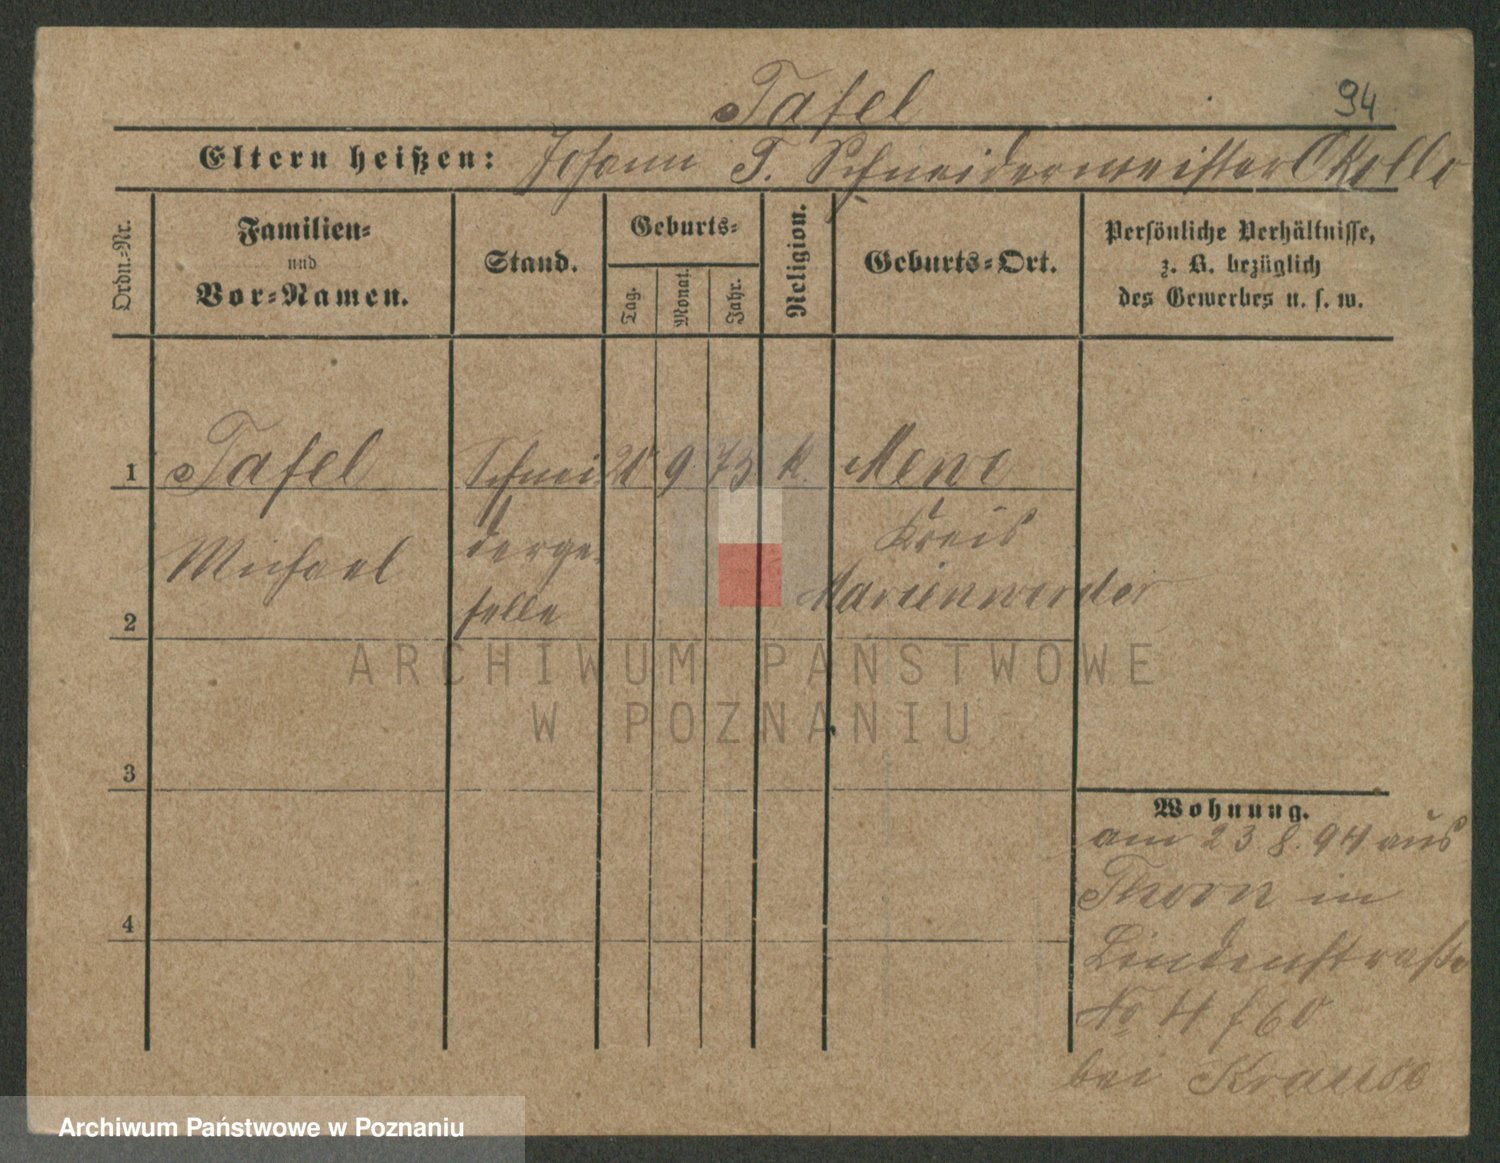 Tafel
94
Eltern heißen: Johann T. Schneidermeister
Ordn.-Nr.
Familien-
und
Vor-Namen.
Stand.
Geburts-
Tag.
Monat.
Jahr.
Religion.
Geburts-Ort.
Persönliche Verhältnisse,
z. B. bezüglich
des Gewerbes u. s. w.
1 Tafel Schnei 20 9 73 k. Mewe
Michael derge- Kreis
selle Marienwerder
2
3
4
Wohnung.
am 23 8. 94 aus
Thorn in
Lindenstraße
No 4
bei Krause
ARCHIWUM PAŃSTWOWE
W POZNANIU
Archiwum Państwowe w Poznaniu